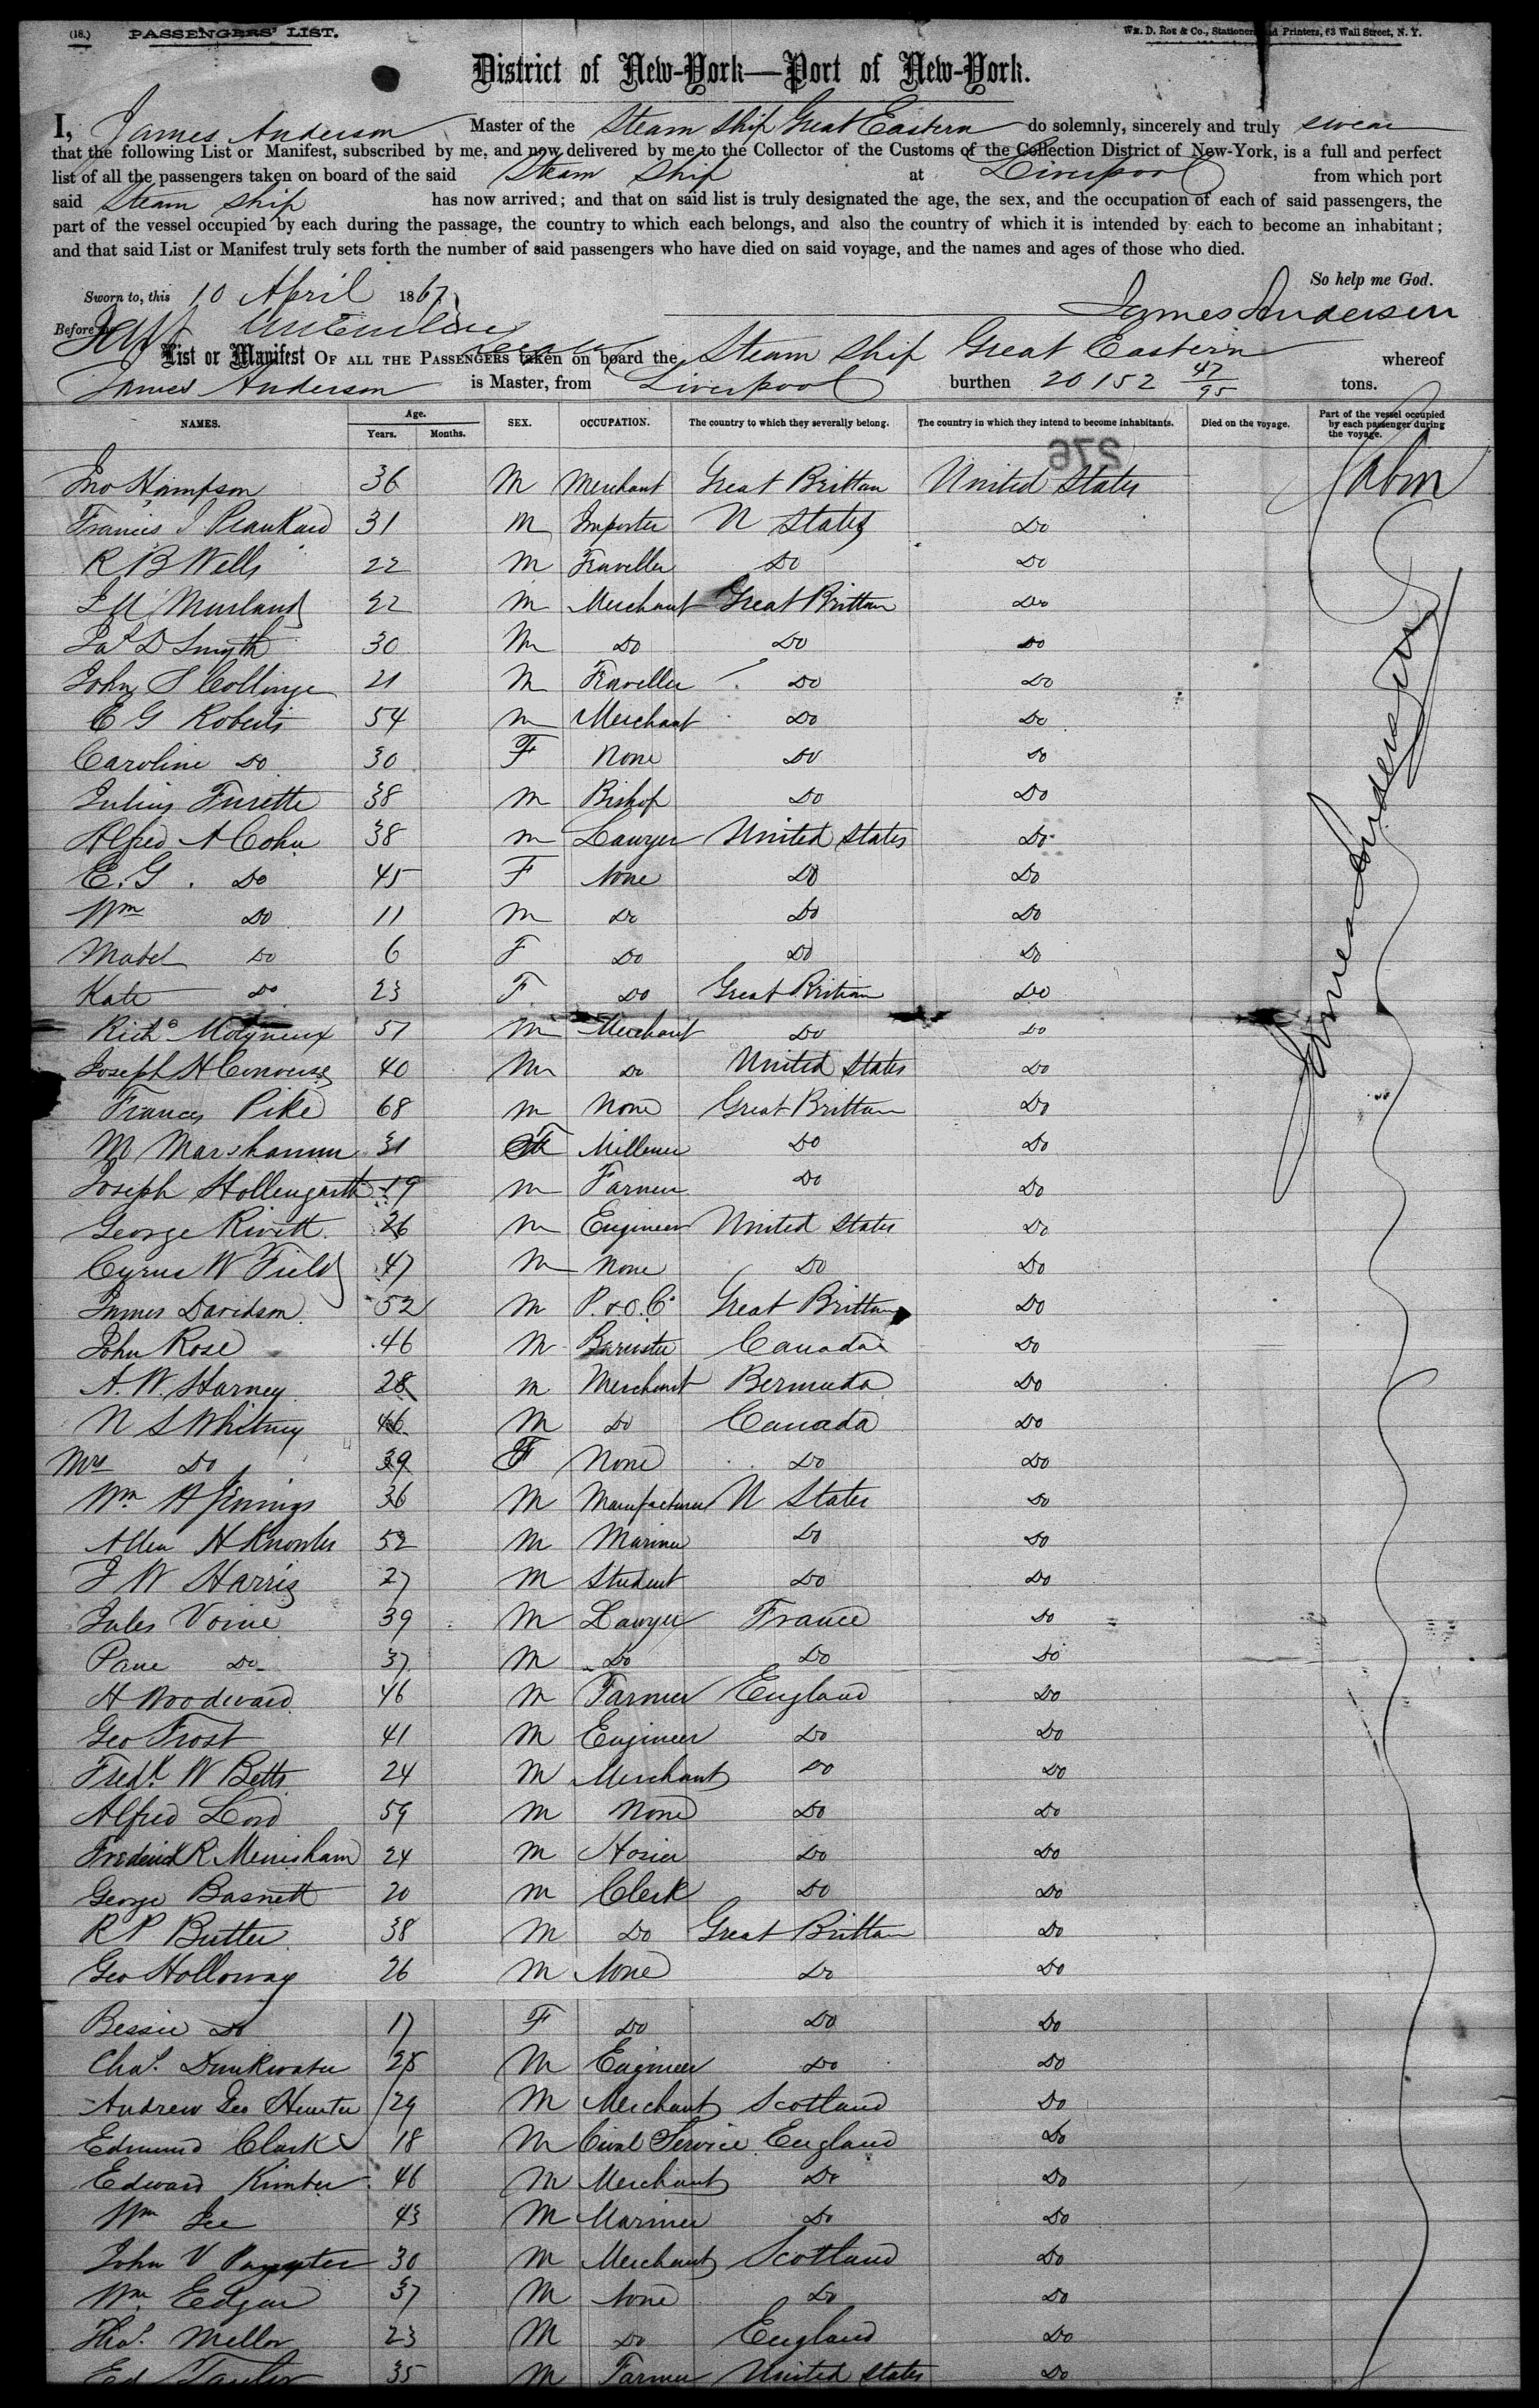 (18.) PASSENGERS' LIST. Wm. D. Roe & Co., Stationers and Printers, 63 Wall Street, N. Y.
District of New-York—Port of New-York.
I, James Anderson Master of the Steam Ship Great Eastern do solemnly, sincerely and truly swear
that the following List or Manifest, subscribed by me, and now delivered by me to the Collector of the Customs of the Collection District of New-York, is a full and perfect
list of all the passengers taken on board of the said Steam Ship at Liverpool from which port
said Steam Ship has now arrived; and that on said list is truly designated the age, the sex, and the occupation of each of said passengers, the
part of the vessel occupied by each during the passage, the country to which each belongs, and also the country of which it is intended by each to become an inhabitant;
and that said List or Manifest truly sets forth the number of said passengers who have died on said voyage, and the names and ages of those who died.
So help me God.
Sworn to, this 10 April 1867
James Anderson
Before me
List or Manifest OF ALL THE PASSENGERS taken on board the Steam Ship Great Eastern whereof
James Anderson is Master, from Liverpool burthen 20152 47/95 tons.
NAMES. Age. Years. Months. SEX. OCCUPATION. The country to which they severally belong. The country in which they intend to become inhabitants. Died on the voyage. Part of the vessel occupied by each passenger during the voyage.
276
Jno Hampson 36 M Merchant Great Brittan United States Cabin
Francis J Plankard 31 M Importer U States Do
R B Wells 22 M Traveller Do Do
Murland 22 M Merchant Great Brittan Do
Jas D Smyth 30 M Do Do Do
John S Collinge 21 M Traveller Do Do
E G Roberts 54 M Merchant Do Do
Caroline Do 30 F None Do Do
Julius Turette 38 M Bishop Do Do
Alfred A Cohn 38 M Lawyer United States Do
E. G. Do 45 F None Do Do
Wm Do 11 M Do Do Do
Mabel Do 6 F Do Do Do
Kate Do 23 F Do Great Brittan Do
Richd Molyneux 51 M Merchant Do Do
Joseph H Converse 40 M Do United States Do
Francis Pike 68 M None Great Brittan Do
M Marshamm 31 F Millener Do Do
Joseph Hollengarth 19 M Farmer Do Do
George Rivett 26 M Engineer United States Do
Cyrus W Field 47 M None Do Do
James Davidson 52 M P. & O. Co Great Brittan Do
John Rose 46 M Barrister Canada Do
A. W. Harney 28 M Merchant Bermuda Do
N S Whitney 46 M Do Canada Do
Mrs Do 39 F None Do Do
Wm H Jennings 36 M Manufacturer U States Do
Allen H Knowles 52 M Mariner Do Do
J W Harris 27 M Student Do Do
Jules Voine 39 M Lawyer France Do
Pane Do 37 M Do Do Do
H Woodward 46 M Farmer England Do
Geo Frost 41 M Engineer Do Do
Fredk W Betts 24 M Merchant Do Do
Alfred Lord 59 M None Do Do
Frederick R Menisham 24 M Hosier Do Do
George Basnett 20 M Clerk Do Do
R P Butter 38 M Do Great Brittan Do
Geo Holloway 26 M None Do Do
Bessie Do 17 F Do Do Do
Chas. Drinkwater 25 M Engineer Do Do
Andrew Geo Hunter 29 M Merchant Scotland Do
Edmund Clark 18 M Cival Service England Do
Edward Kimber 46 M Merchant Do Do
Wm Lee 43 M Mariner Do Do
John V Paynter 30 M Merchant Scotland Do
Wm. Edgar 37 M None Do Do
Thos. Mellor 23 M Do England Do
Ed Taylor 35 M Farmer United States Do
James Anderson